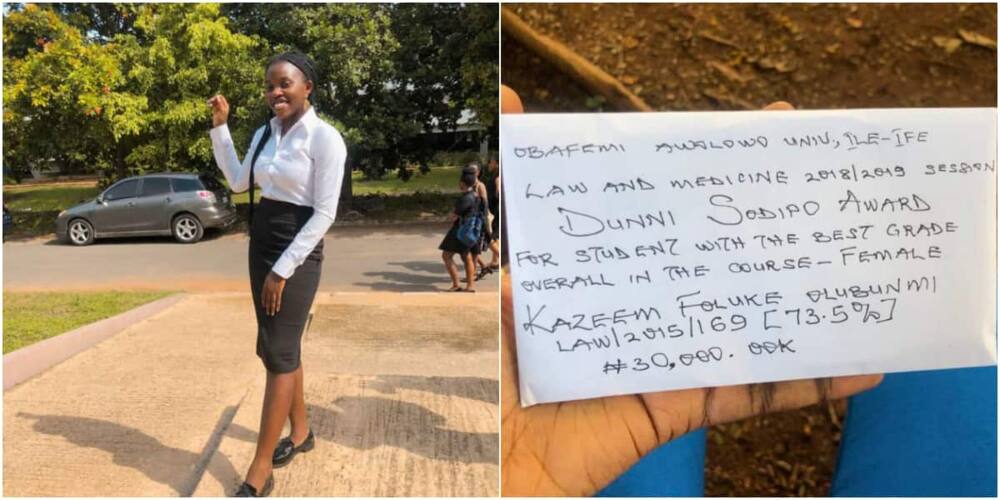 OBAFEMI AWOLOWO UNIV., ILE-IFE
LAW AND MEDICINE 2018/2019 SESSION
DUNNI SODIPO AWARD
FOR STUDENT WITH THE BEST GRADE
OVERALL IN THE COURSE – FEMALE
KAZEEM FOLUKE OLUBUNMI
LAW/2015/169 [73.5%]
₦30,000.00K